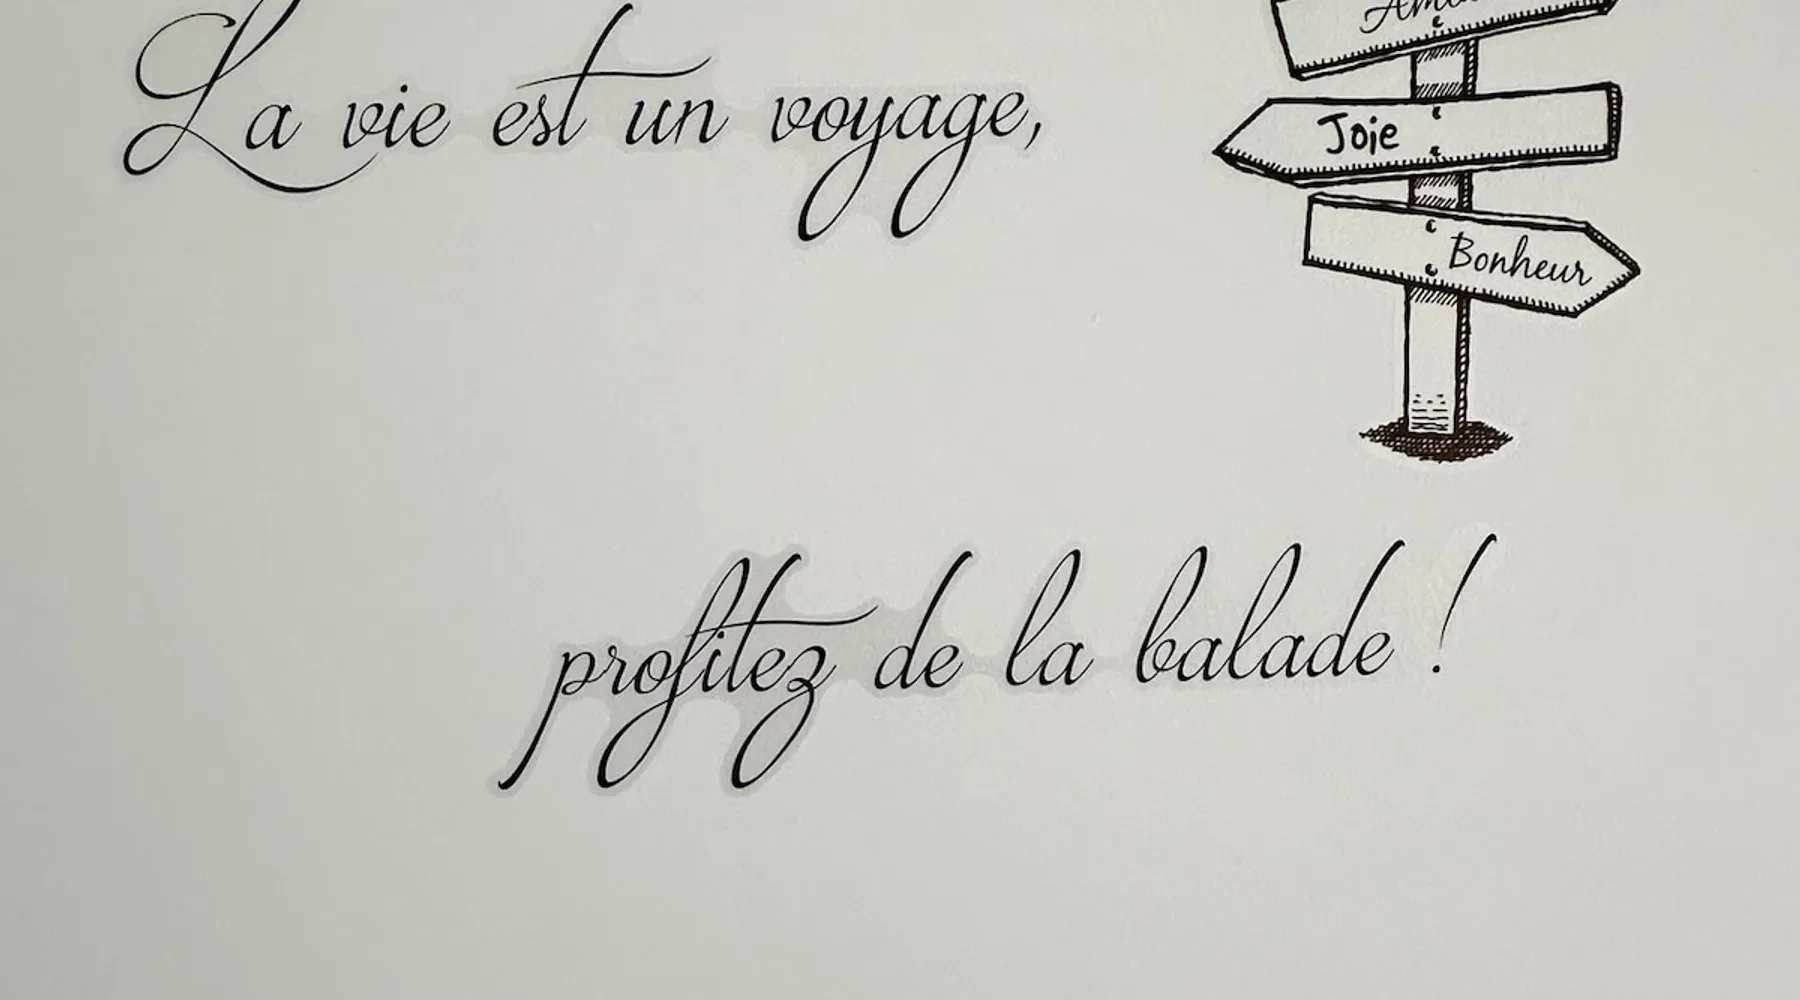 La vie est un voyage,
Joie
Bonheur
profitez de la balade !